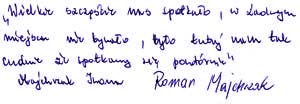 "Wielkie szczęście nas spotkało, w żadnym
miejscu nie bywało, było tutaj nam tak
cudnie że spotkamy się powtórnie"
Majchrzak Iwona Roman Majchrzak